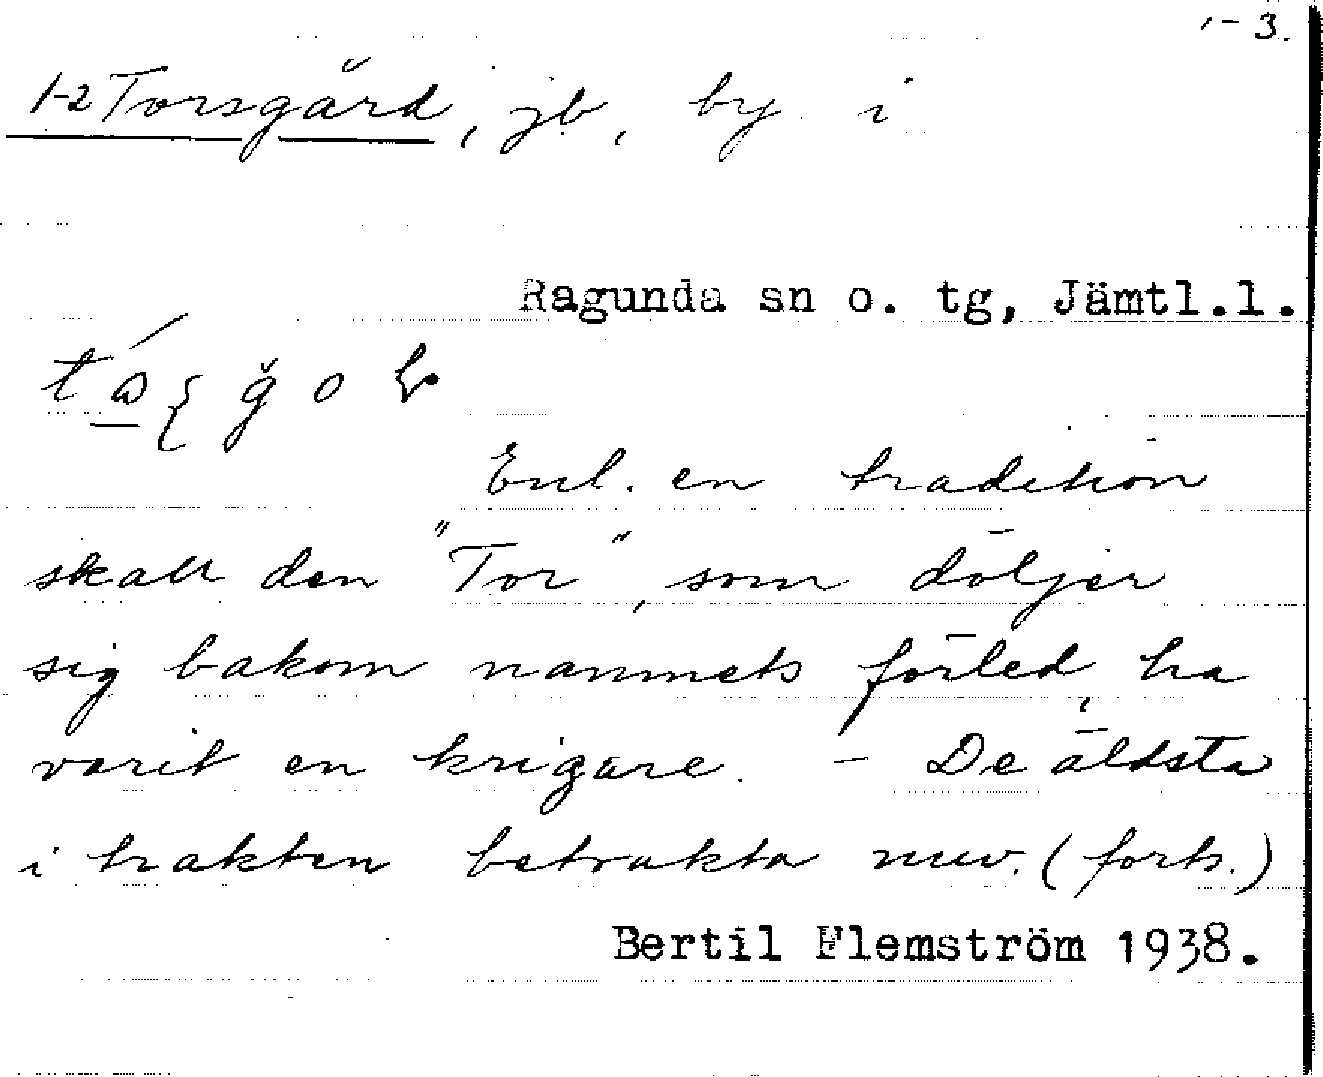 1-3.
1-2 Torsgård, jb, by i
Ragunda sn o. tg, Jämtl.l.
Enl. en tradition
skall den "Tor", som döljer
sig bakom namnets förled, ha
varit en krigare. - De äldsta
i trakten betrakta nuv. (forts.)
Bertil Flemström 1938.